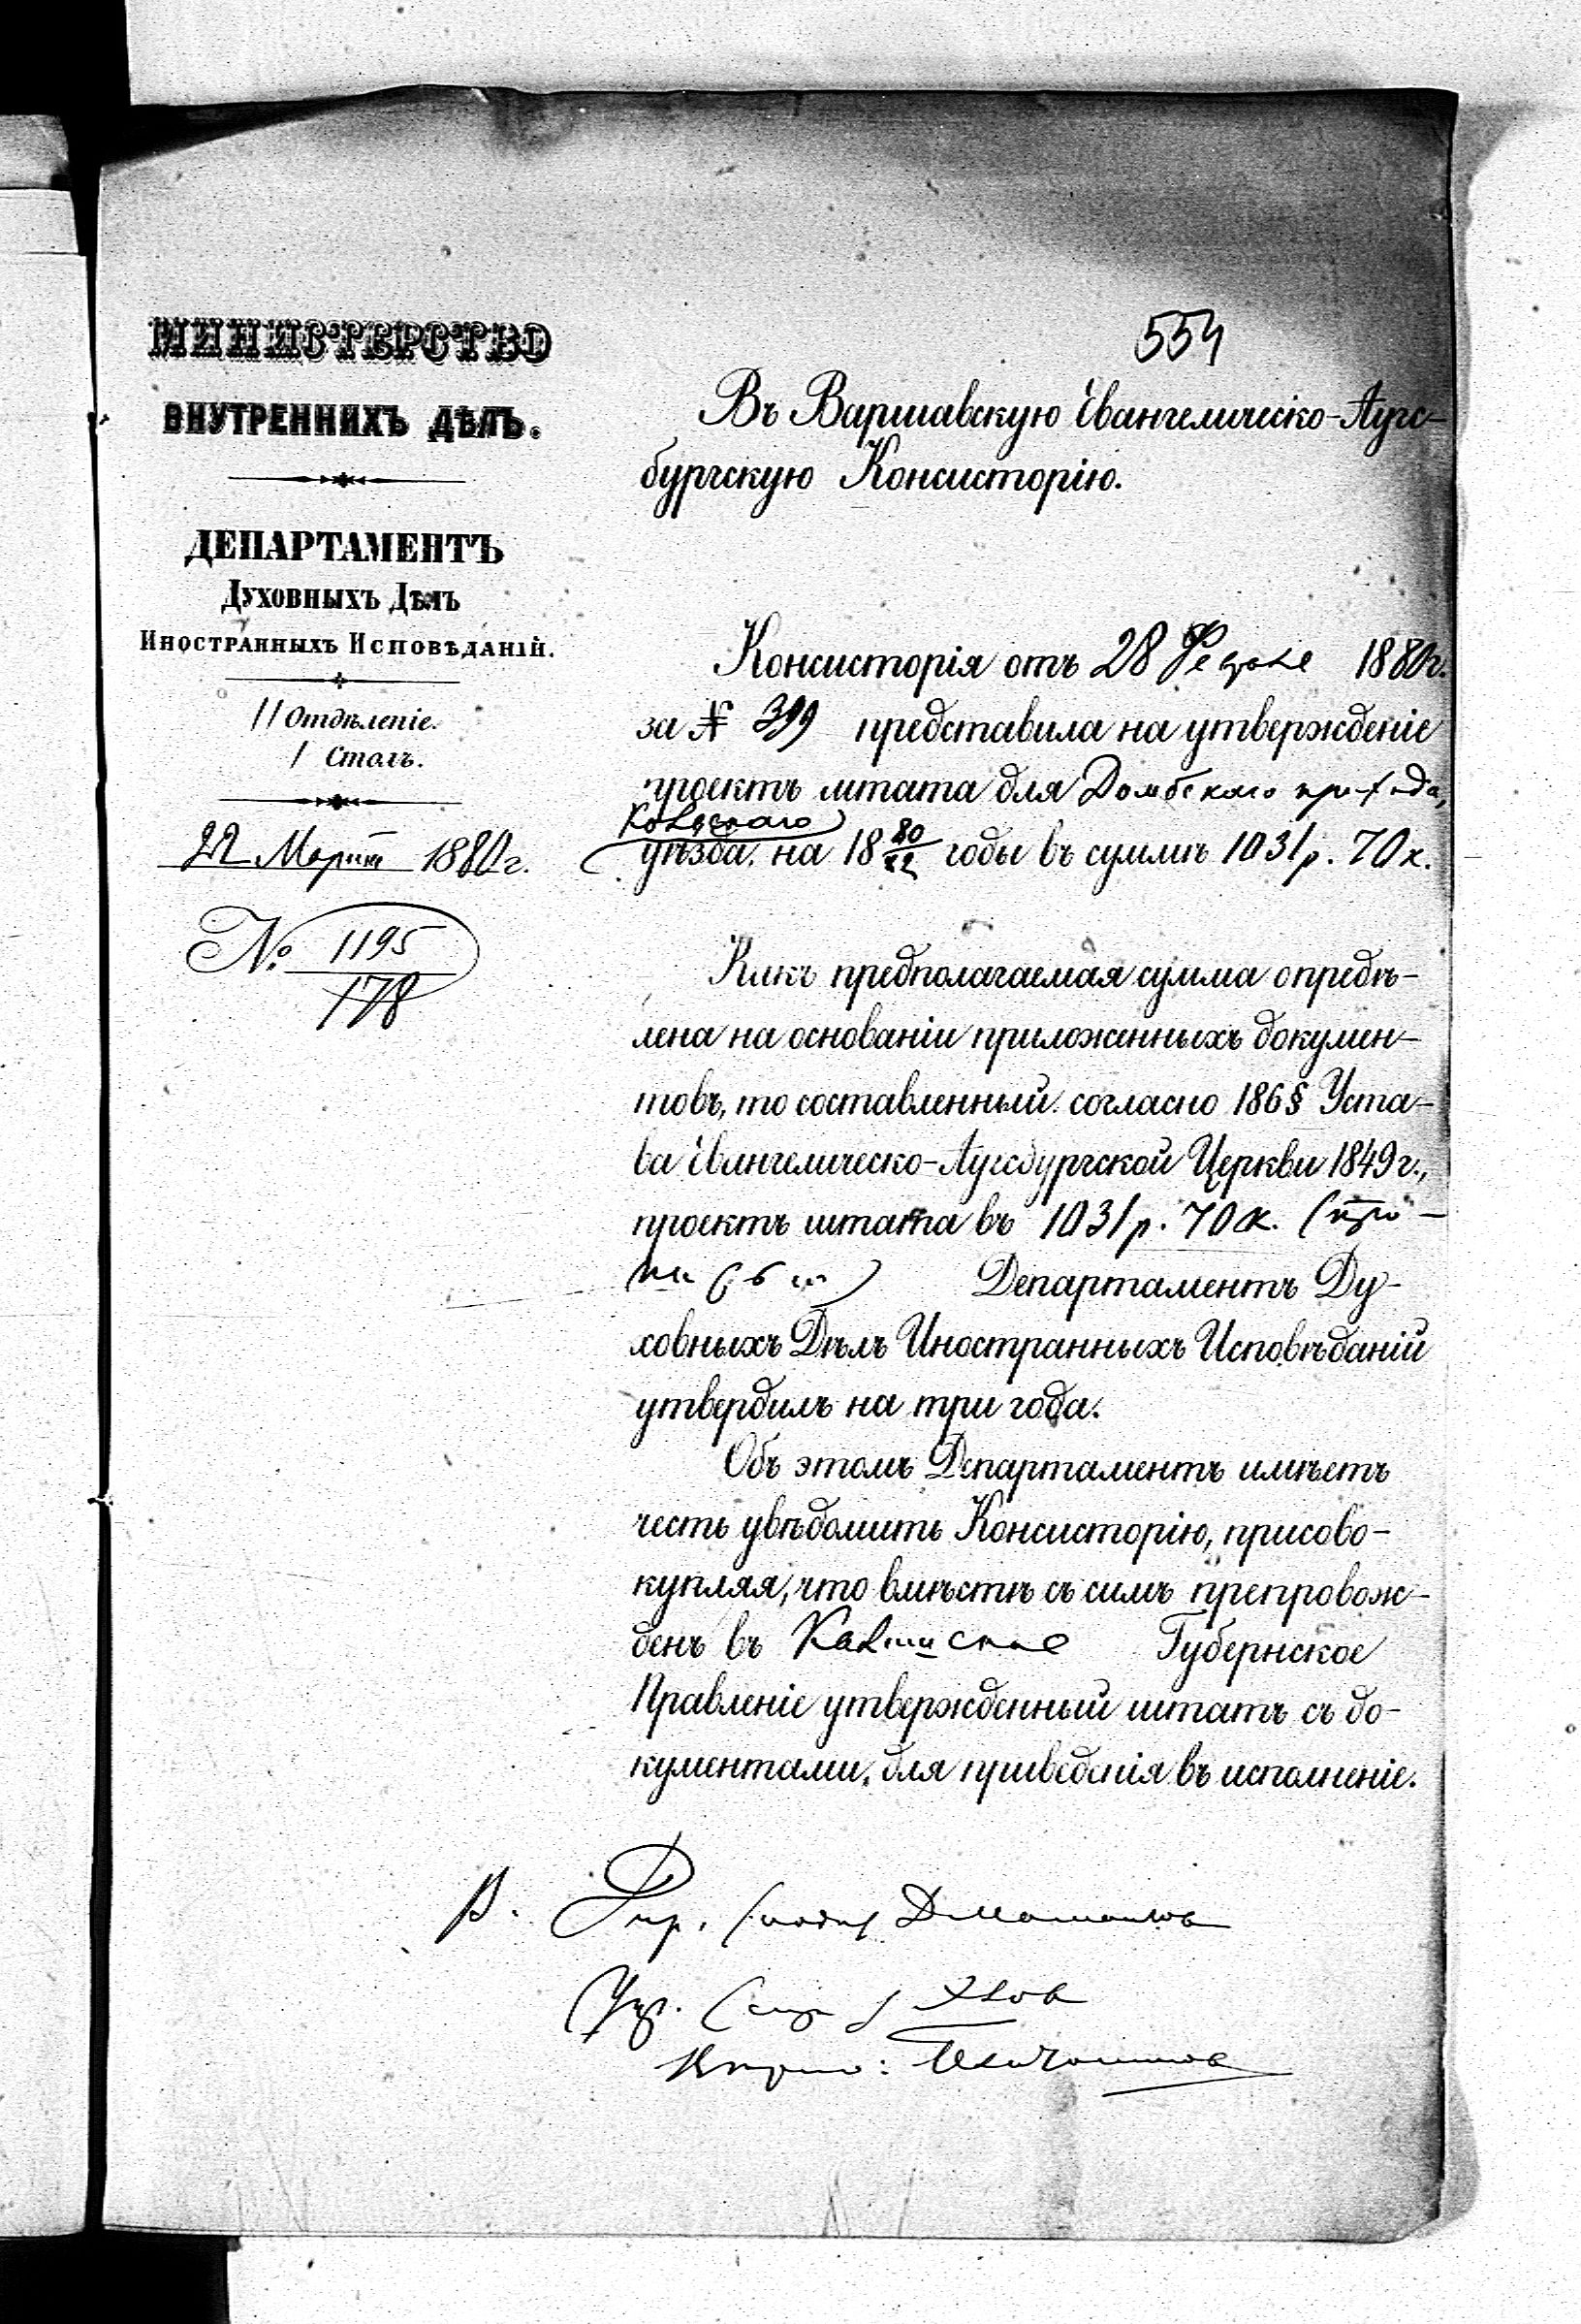 МИНИСТЕРСТВО
ВНУТРЕННИХЪ ДѢЛЪ.
ДЕПАРТАМЕНТЪ
ДУХОВНЫХЪ ДѢЛЪ
ИНОСТРАННЫХЪ ИСПОВѢДАНІЙ.
II Отдѣленіе.
I Столъ.
22 Марта 1880 г.
№ 1195
178
554
Въ Варшавскую Евангелическо-Аугс-
бургскую Консисторію.
Консисторія отъ 28 Февраля 1880 г.
за № 399 представила на утвержденіе
проектъ штата для Домбскаго прихода,
Кольскаго
уѣзда на 18 80/82 годы въ суммѣ 1031 р. 70 к.
Какъ предполагаемая сумма опредѣ-
лена на основаніи приложенныхъ докумен-
товъ, то составленный согласно 186 § Уста-
ва Евангелическо-Аугсбургской Церкви 1849 г.,
проектъ штата въ 1031 р. 70 к.
Департаментъ Ду-
ховныхъ Дѣлъ Иностранныхъ Исповѣданій
утвердилъ на три года.
Объ этомъ Департаментъ имѣетъ
честь увѣдомить Консисторію, присово-
купляя, что вмѣстѣ съ симъ препровож-
денъ въ Калишское Губернское
Правленіе утвержденный штатъ съ до-
кументами, для приведенія въ исполненіе.